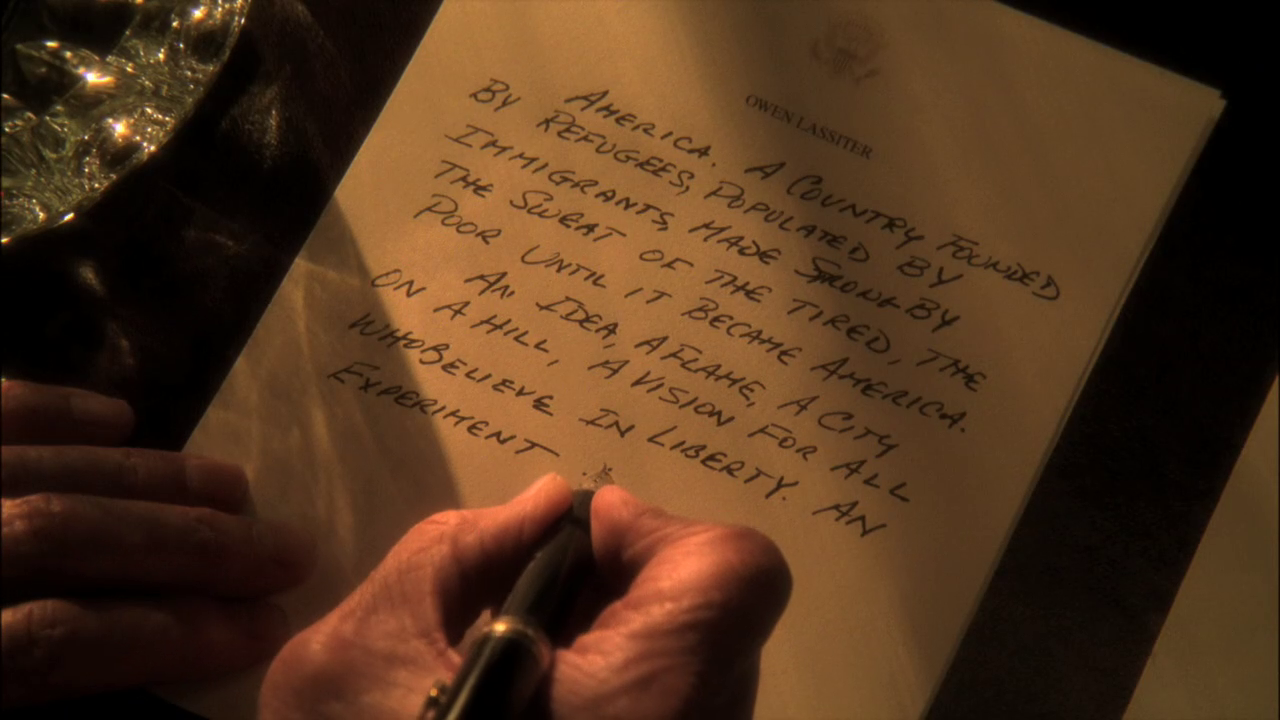 OWEN LASSITER
AMERICA. A COUNTRY FOUNDED
BY REFUGEES, POPULATED BY
IMMIGRANTS, MADE STRONG BY
THE SWEAT OF THE TIRED, THE
POOR UNTIL IT BECAME AMERICA.
AN IDEA, A FLAME, A CITY
ON A HILL, A VISION FOR ALL
WHO BELIEVE IN LIBERTY. AN
EXPERIMENT